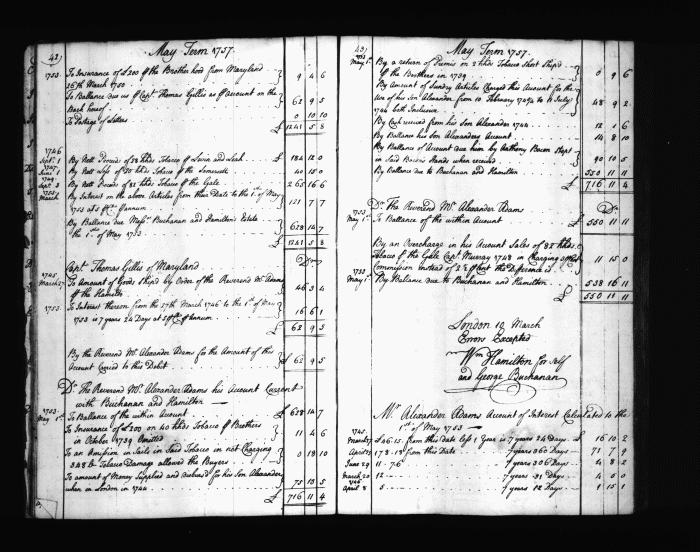 42)
May Term 1757.
1753. To Insurance of £200 p the Brotherhood from Maryland
26th March 1750 9 4 6
To Ballance due us p Capt. Thomas Gillis as p Account on the
Back hereof 62 9 5
To Postage of Letters 0 10 10
£ 1241 5 8
1746
Sept. 1 By Nett Proceeds of 38 hhds Tobacco p Lovin and Leah £ 184 12 0
1747
June 1 By Nett of 50 hhds p the Somersett 40 15 0
1749
Sept. 3 By Nett Proceeds of 82 hhds Tobacco p the Gale 265 16 6
1753
March By Interest on the above Articles from their Date to the 1st of May
1753 at 5 p Ct. p annum 121 7 7
By Ballance due Messrs. Buchanan and Hamilton's Estate
the 1st of May 1753 628 14 7
£ 1241 5 8
Capt. Thomas Gillis of Maryland Dr.
1745
March 27 To Amount of Goods ship'd by Order of the Reverend Mr. Adams
p the Hamilton 46 3 4
1753. To Interest thereon from the 27th March 1746 to the 1st of May
1753 is 7 years 24 Days at 5 p Ct. p annum 16 6 1
£ 62 9 5
By the Reverend Mr. Alexander Adams for the Amount of this
Account carried to this Debit £ 62 9 5
Dr. The Reverend Mr. Alexander Adams his Account Current
with Buchanan and Hamilton
1753
May 1st To Ballance of the within Account £ 628 14 7
To Insurance of £200 on 40 hhds Tobacco p Brothers
in October 1739 Omitted 11 4 6
To an Omission in Sails in said Tobacco in not Charging
348 lb Tobacco Damage allowed the Buyers 0 18 10
To amount of Money Supplied and disbursed for his Son Alexander
when in London in 1744 75 13 5
£ 716 11 4
43)
May Term 1757.
1753
May 1st By a return of Premio on 2 hhds Tobacco Short Ship'd
p the Brothers in 1739 0 9 6
By Amount of Sundry Articles Charged this Account for the
Use of his Son Alexander from 10 February to 11 July
1744 both Inclusive 48 9 2
By Cash received from his Son Alexander 1744 12 1 6
By Ballance his Son Alexanders Account 14 8 10
By Ballance of Account due him by Anthony Bacon Kept
in Said Bacons Hands when received 90 10 5
By Ballance due to Buchanan and Hamilton 550 11 11
£ 716 11 4
Dr. The Reverend Mr. Alexander Adams Dr.
1753
May 1st To Ballance of the within Account £ 550 11 11
By an Overcharge in his Account Sales of 85 hhds
Tobacco p the Gale Capt. Murray 1748 in Charging
Commission instead of p Cent the Difference is 11 15 0
1753
May 1st By Ballance due to Buchanan and Hamilton 538 16 11
£ 550 11 11
London 10 March
Errors Excepted
Wm. Hamilton for self
and George Buchanan
Mr. Alexander Adams Account of Interest Calculated to the
1st of May 1753
1745
March 27 £46.15. from this date left 1 year is 7 years 24 Days £ 16 10 2
April 29 178.18 from this Date 7 years 360 Days 71 7 9
June 29 11.7.6 7 years 306 Days 4 8 2
March 20 12 7 years 31 Days 4 5 0
1746
April 8 5 7 years 12 Days 1 15 1